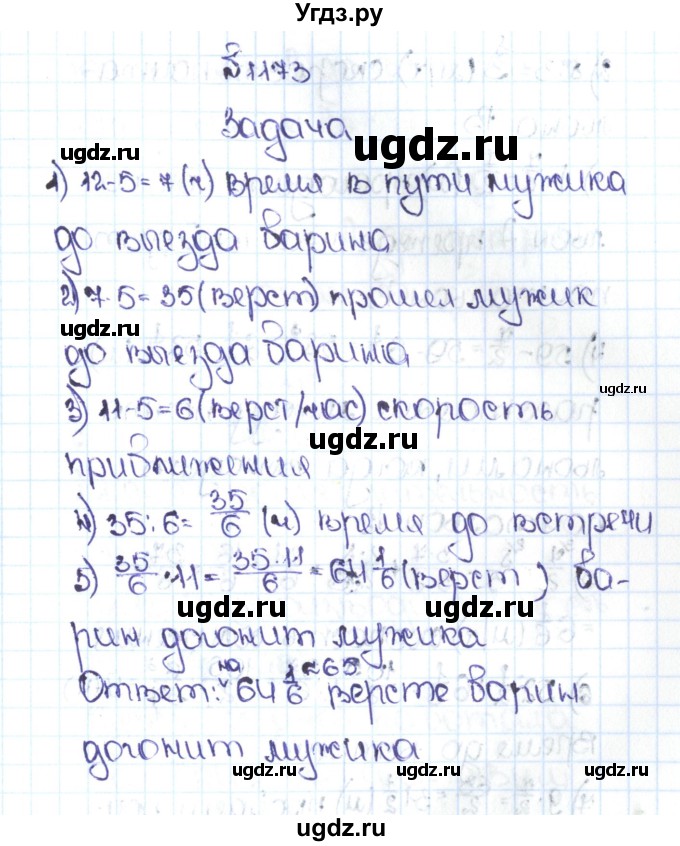 Угдз.ру
№1173
Задача
ugdz.ru
ugdz.ru
1) 12-5=7(ч) время в пути мужика
до выезда барина
ugdz.ru
2) 7·5=35(верст) прошел мужик
ugdz.ru
до выезда барина
ugdz.ru
3) 11-5=6(верст/час) скорость
ugdz.ru
приближения
ugdz.ru
4) 35:6=35/6 (ч) время до встречи
ugdz.ru
5) 35/6·11=35·11/6=64 1/6(верст) ба-
ugdz.ru
рин догонит мужика
ugdz.ru
Ответ: на 64 1/6 ≈65 версте барин
ugdz.ru
догонит мужика
ugdz.ru
ugdz.ru
ugdz.ru